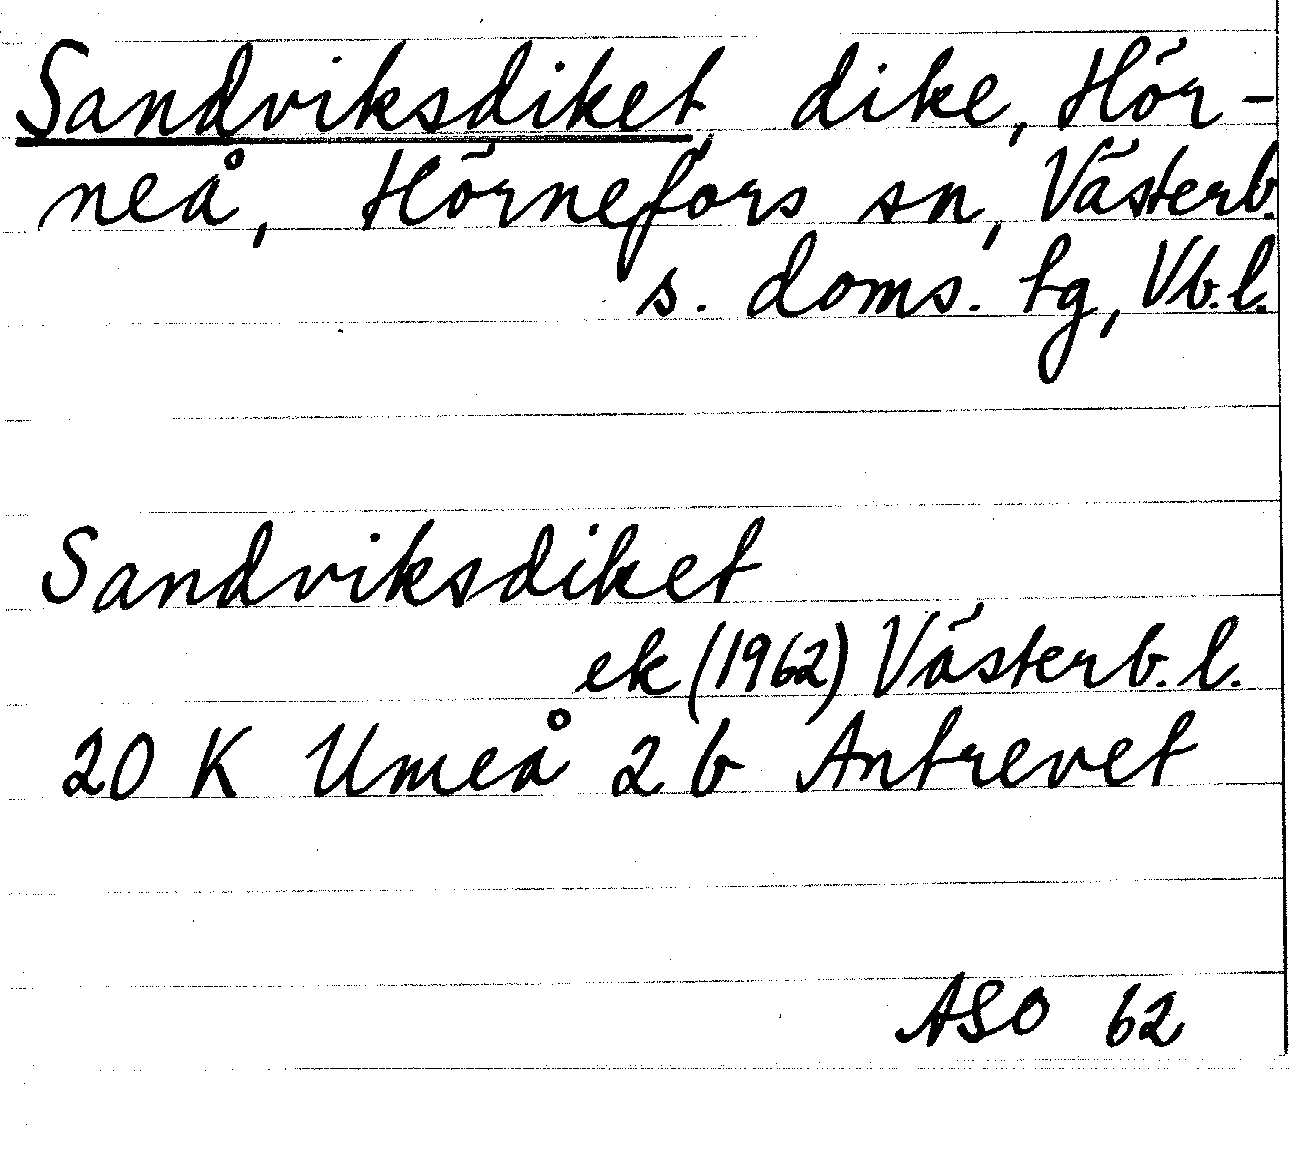 Sandviksdiket, dike, Hör-
neå, Hörnefors sn, Västerb.
s. doms. tg, Vb. l.
Sandviksdiket
ek (1962) Västerb. l.
20 K Umeå 2 b Antrevet
ASO 62